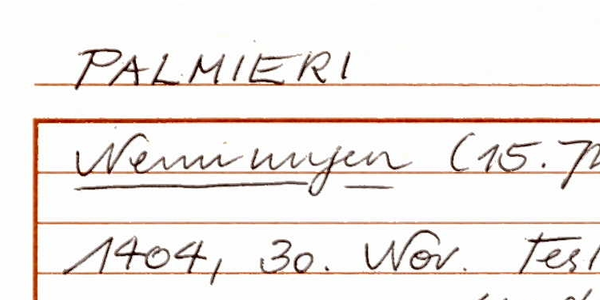 PALMIERI
Nennungen (15.
1404, 30. Nov. Test